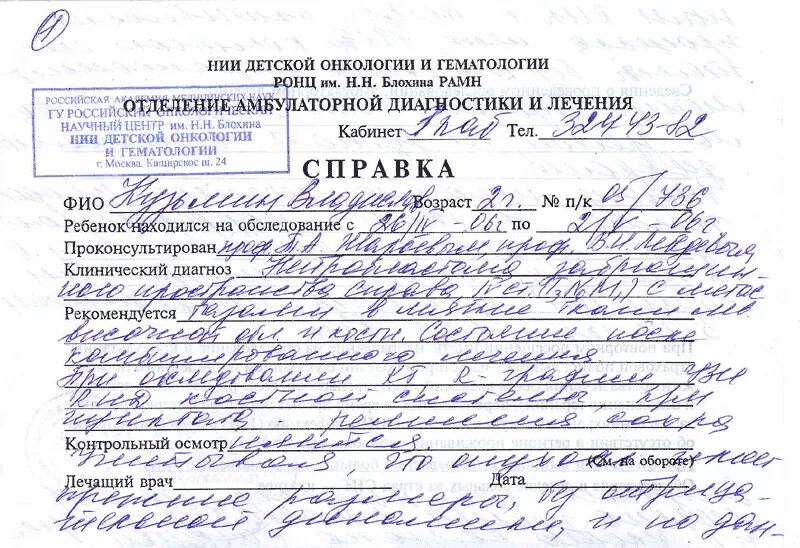 1
НИИ ДЕТСКОЙ ОНКОЛОГИИ И ГЕМАТОЛОГИИ
РОНЦ им. Н.Н. Блохина РАМН
ОТДЕЛЕНИЕ АМБУЛАТОРНОЙ ДИАГНОСТИКИ И ЛЕЧЕНИЯ
РОССИЙСКАЯ АКАДЕМИЯ МЕДИЦИНСКИХ НАУК
ГУ РОССИЙСКИЙ ОНКОЛОГИЧЕСКИЙ
НАУЧНЫЙ ЦЕНТР им. Н.Н. Блохина
НИИ ДЕТСКОЙ ОНКОЛОГИИ
И ГЕМАТОЛОГИИ
г. Москва, Каширское ш. 24
Кабинет Тел. 324 43-82
СПРАВКА
ФИО Кузьмин Владислав Возраст 2 г. № п/к 05/736
Ребенок находился на обследование с 26/IV-06г по 2/V-06г
Проконсультирован проф. проф.
Клинический диагноз Нейробластома забрюшин-
ного пространства справа ст. с метас
Рекомендуется тазами в мягкие ткани
височной обл. и кости. Состояние после
комбинированного лечения
При обследовании КТ, R-графии
костной системы,
ремиссия сохра
Контрольный осмотр няется.
(См. на обороте)
Учитывая что опухоль имеет
Лечащий врач Дата
прежние размеры, без отрица
тельной динамики, и по дан-